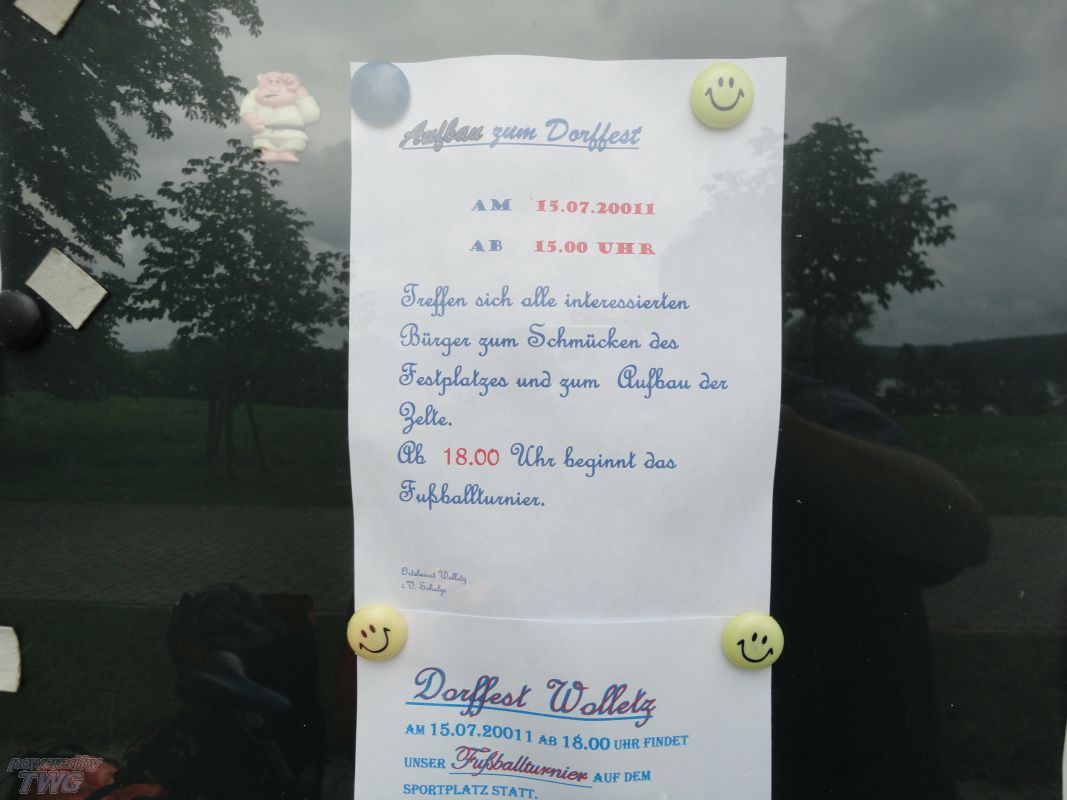 Aufbau zum Dorffest
AM 15.07.20011
AB 15.00 UHR
Treffen sich alle interessierten
Bürger zum Schmücken des
Festplatzes und zum Aufbau der
Zelte.
Ab 18.00 Uhr beginnt das
Fußballturnier.
Ortsbeirat Wolletz
i.V. Schulze
Dorffest Wolletz
AM 15.07.20011 AB 18.00 UHR FINDET
UNSER Fußballturnier AUF DEM
SPORTPLATZ STATT.
powered by
TWG